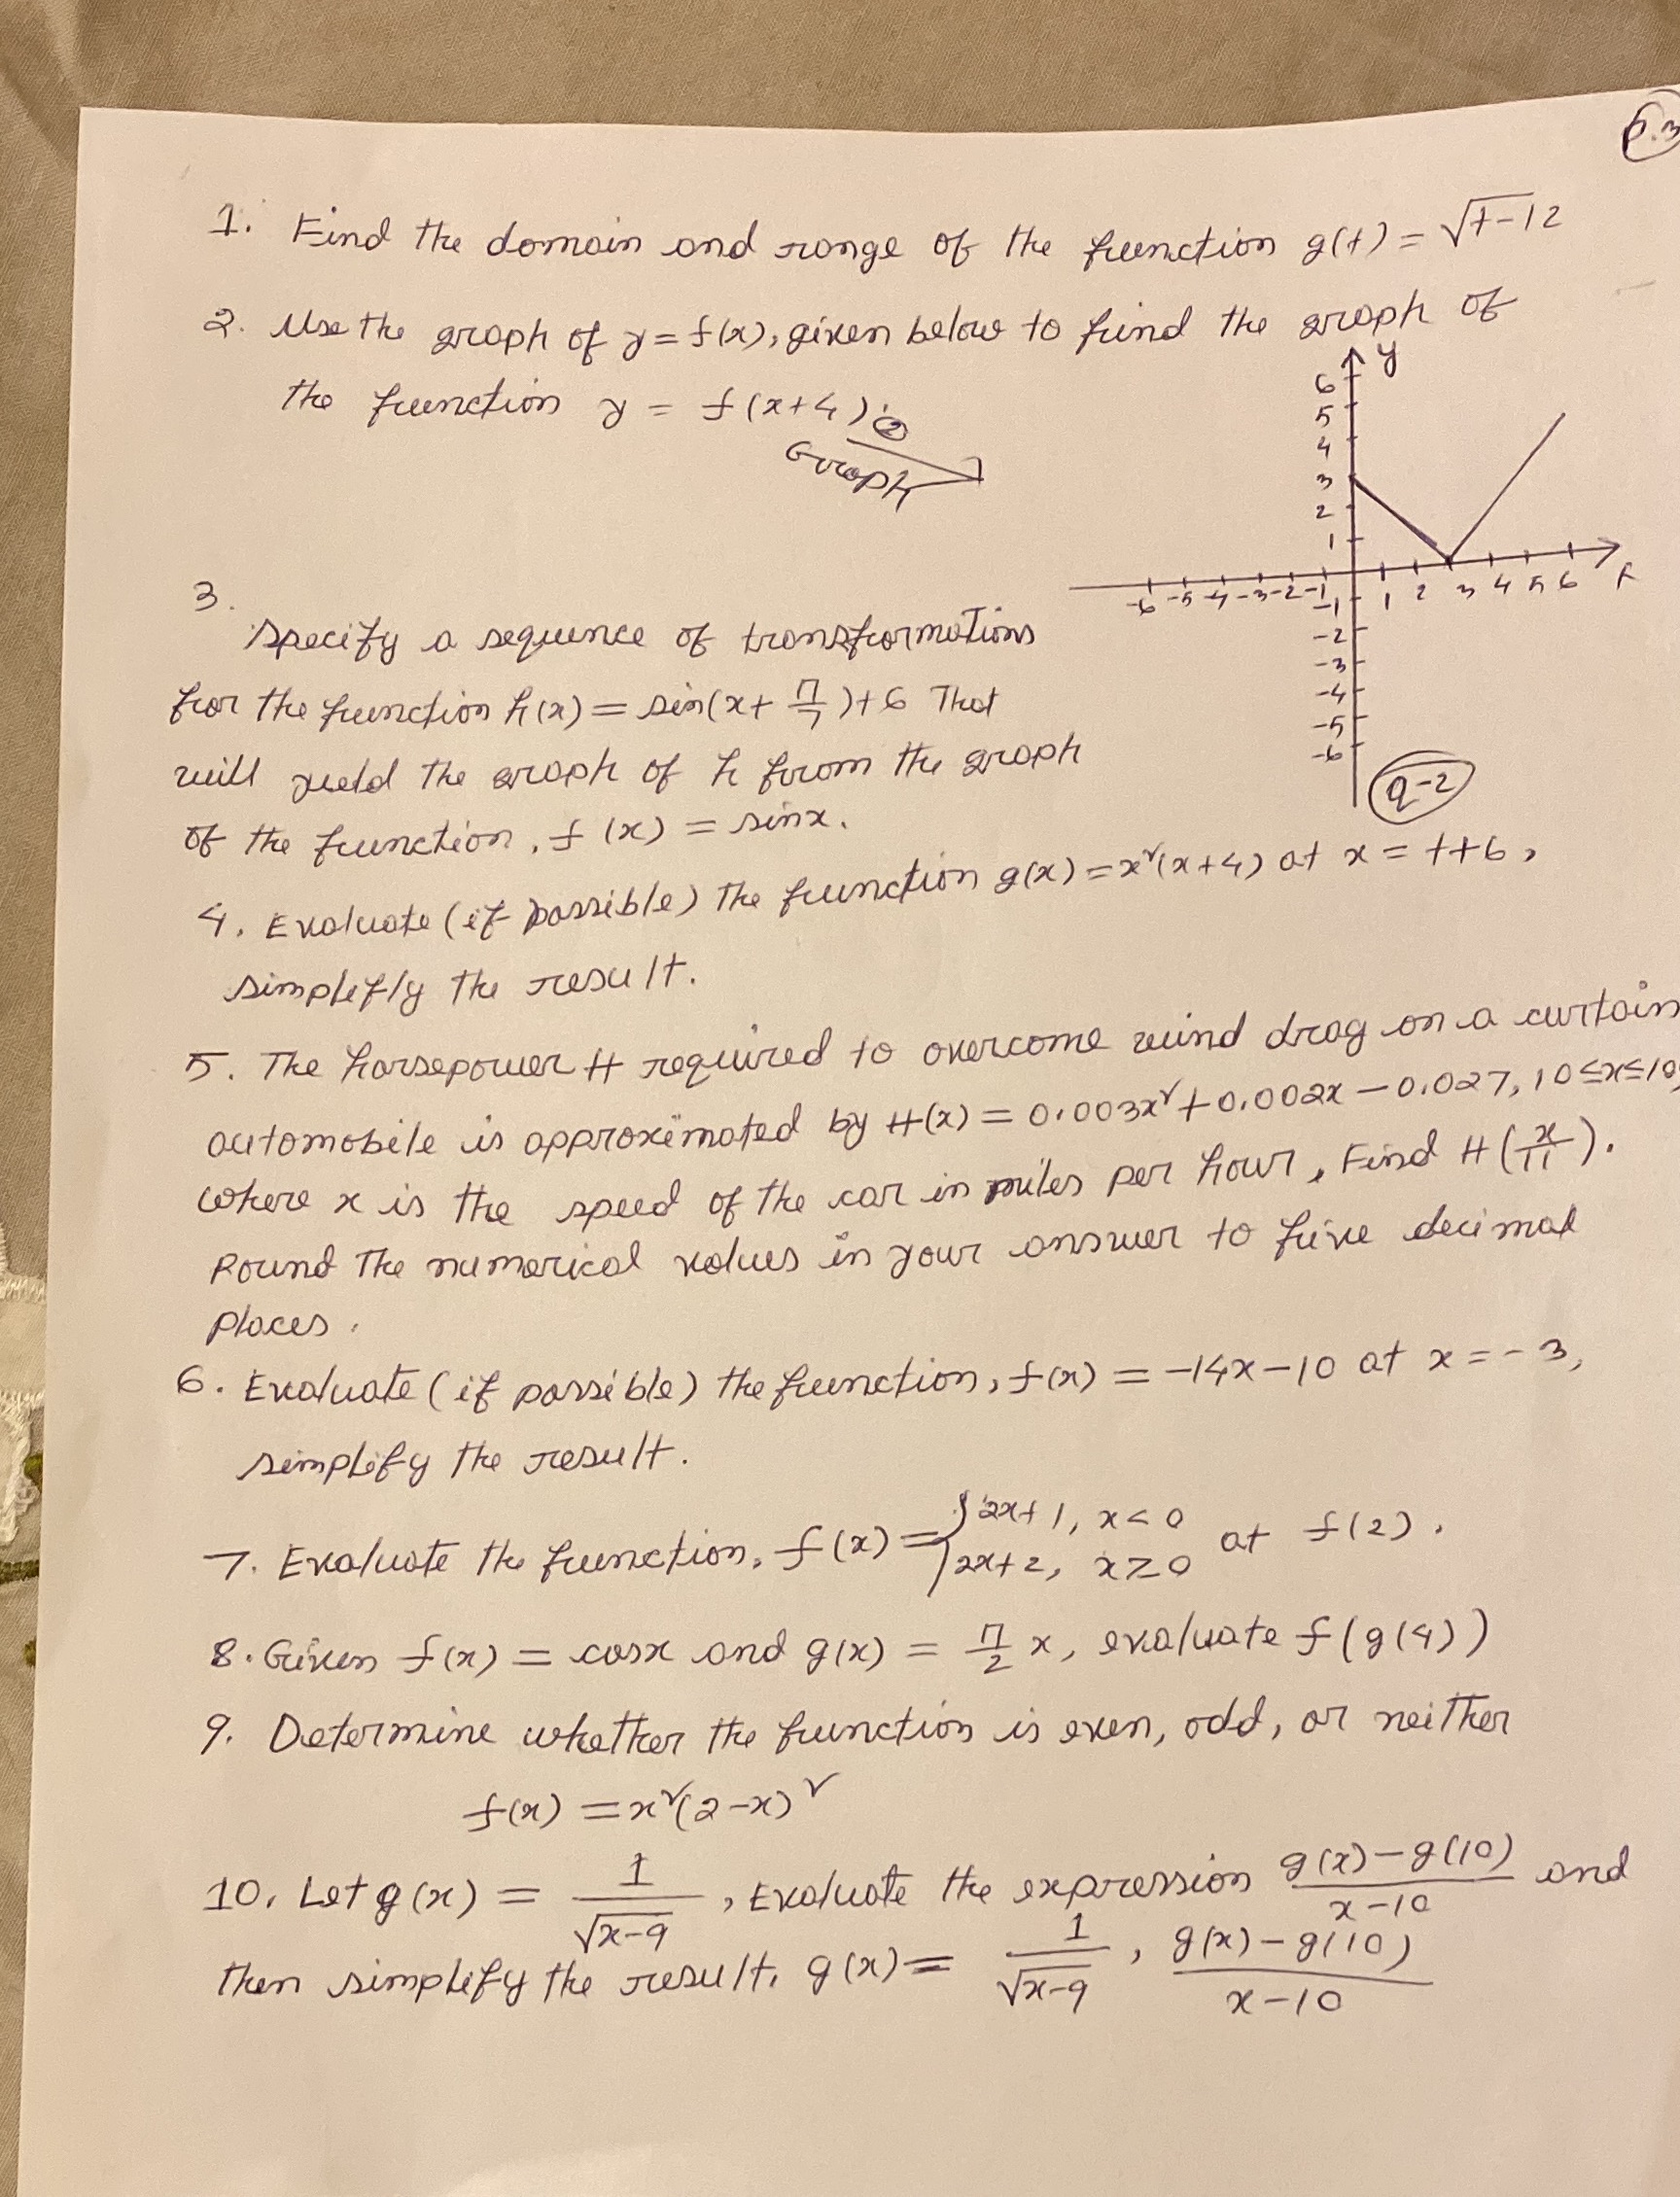 P.3
1. Find the domain and range of the function g(t) = √t-12
2. Use the graph of y = f(x), given below to find the graph of
the function y = f(x+4) :②
Graph
y
6
5
4
3
2
1
-6 -5 -4 -3 -2 -1 1 2 3 4 5 6
-1
-2
-3
-4
-5
-6
Q-2
3.
specify a sequence of transformations
for the function h(x) = sin(x + π/7) + 6 That
will yield the graph of h from the graph
of the function, f(x) = sinx.
4. Evaluate (if possible) the function g(x) = x²(x+4) at x = t+6,
simplifly the result.
5. The horsepower H required to overcome wind drag on a curtain
automobile is approximated by H(x) = 0.003x² + 0.002x - 0.027, 10≤x≤10
where x is the speed of the car in miles per hour, Find H(x/11).
Round the numerical values in your answer to five decimal
places.
6. Evaluate (if possible) the function, f(x) = -14x-10 at x = -3,
simplify the result.
7. Evaluate the function, f(x) = { 2x+1, x<0 2x+2, x≥0 at f(2).
8. Given f(x) = cosx and g(x) = π/2 x, evaluate f(g(4))
9. Determine whether the function is even, odd, or neither
f(x) = x²(2-x)²
10. Let g(x) = 1/√x-9, Evaluate the expression g(x)-g(10)/x-10 and
then simplify the result. g(x) = 1/√x-9, g(x)-g(10)/x-10